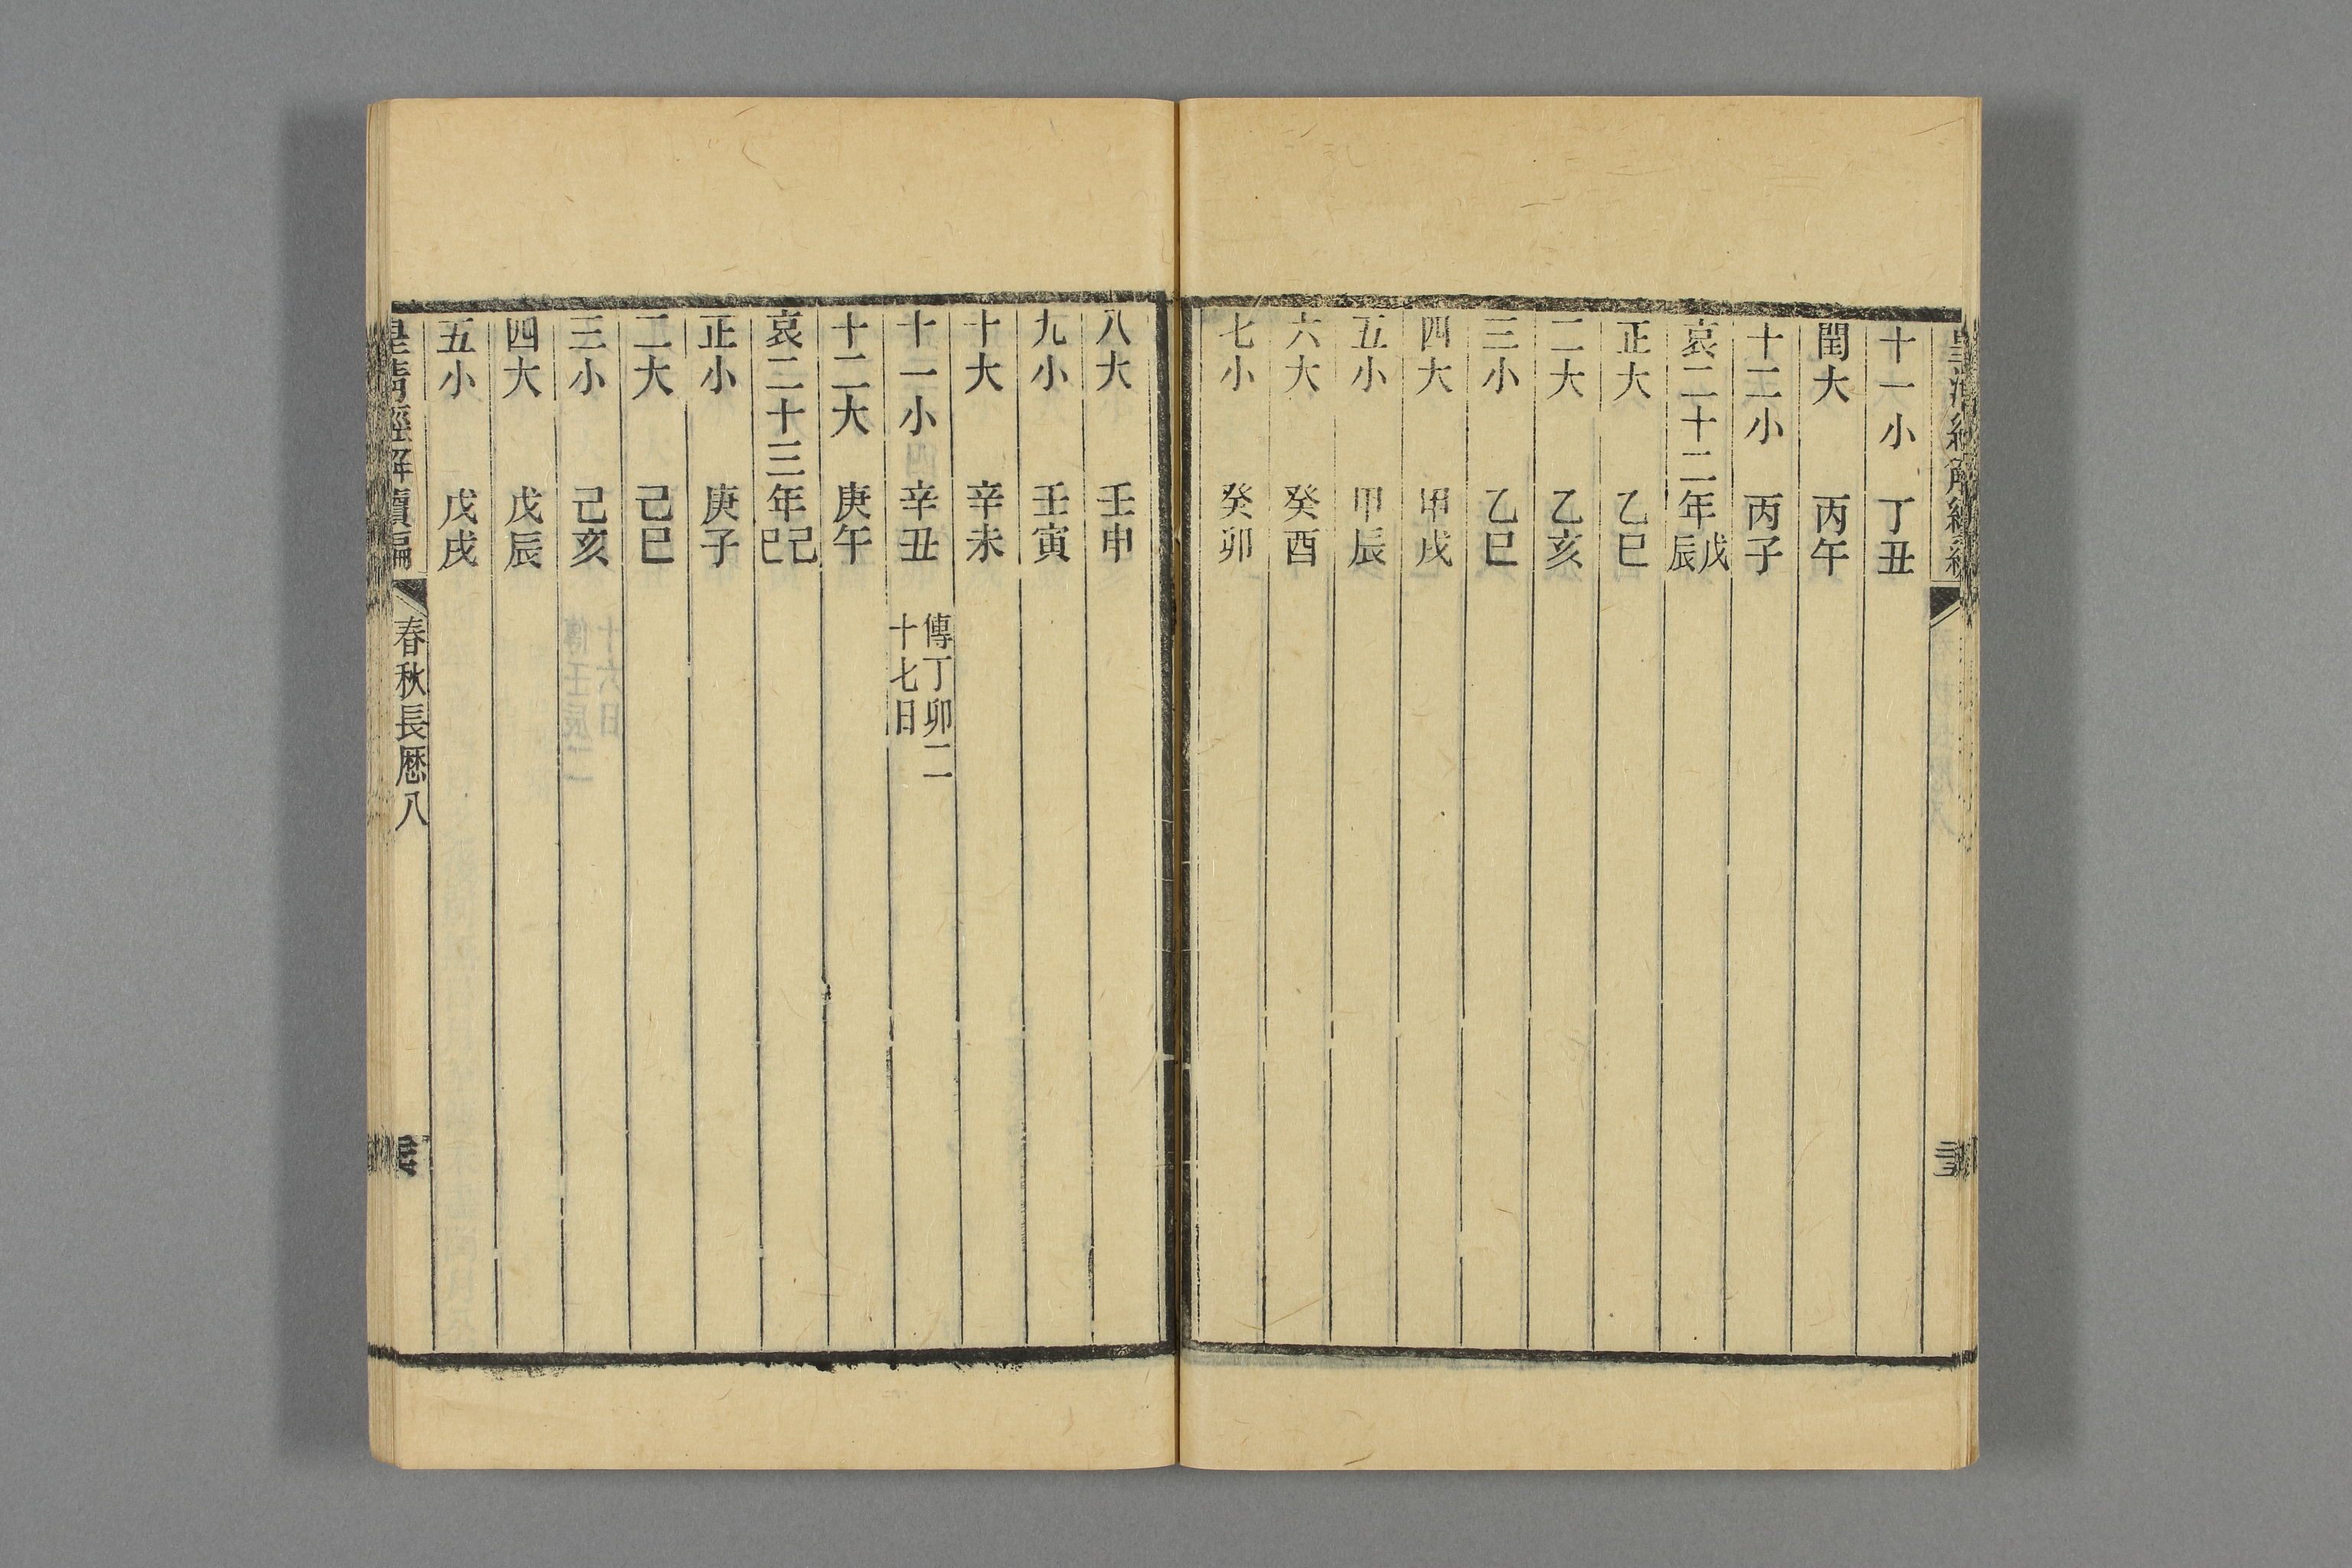 十一小 丁丑
閏大 丙午
十二小 丙子
哀二十二年戊辰
正大 乙巳
二大 乙亥
三小 乙巳
四大 甲戌
五小 甲辰
六大 癸酉
七小 癸卯
八大 壬申
九小 壬寅
十大 辛未
十一小 辛丑 傳丁卯二
十七日
十二大 庚午
哀二十三年己巳
正小 庚子
二大 己巳
三小 己亥
四大 戊辰
五小 戊戌
皇清經解續編 春秋長厯八